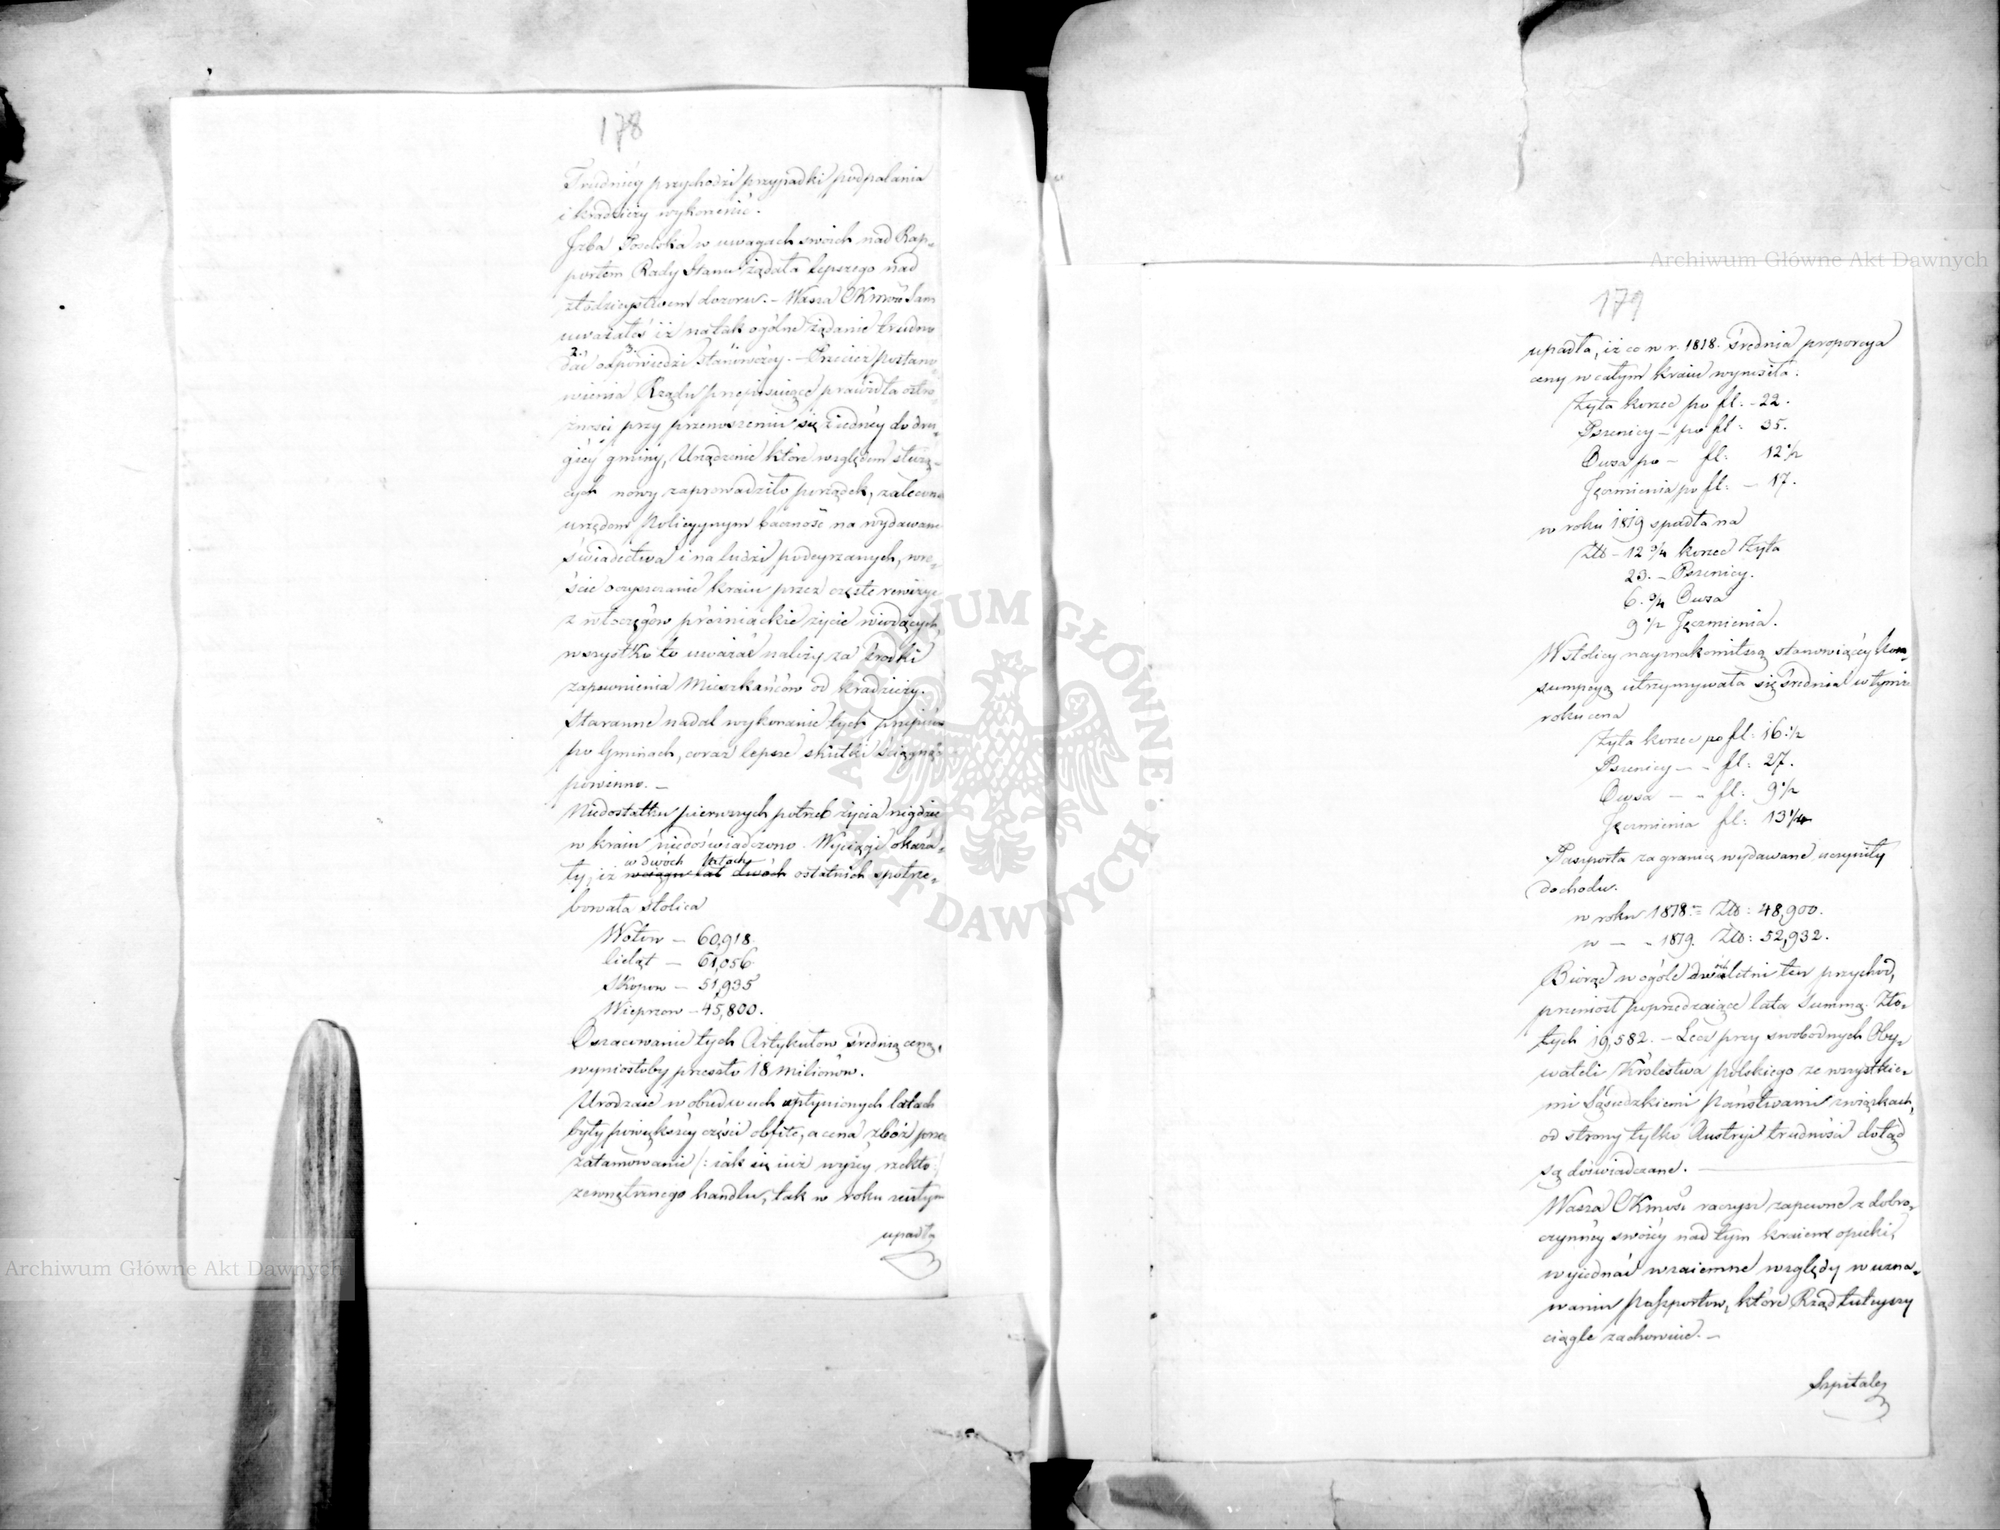 178
Trudniéy przychodzi przypadki podpalania
i kradzieży wykorzenić.
Izba Poselska w uwagach swoich nad Rap-
portem Rady Stanu żądała lepszego nad
złodzieystwem dozoru. – Wasza CKmość sam
uważałeś iż na tak ogólne żądanie trudno
dać odpowiedzi stanowczéy. – Przecież postano-
wienia Rządu przepisuiące prawidła ostro-
żności przy przenoszeniu się z iednéy do dru-
giéy gminy, Urządzenie które względem służą-
cych nowy zaprowadziło porządek, zalecona
urzędom Policyynym baczność na wydawane
świadectwa i na ludzi podeyrzanych, wre-
ście oczyszczanie kraiu przez częste rewizye
z włóczęgów próżniackie życie wiodących,
wszystko to uważać należy za środki
zapewnienia Mieszkańców od kradzieży.
Staranne nadal wykonanie tych przepisów
po Gminach, coraz lepsze skutki ściągnąć
powinno. –
Niedostatku pierwszych potrzeb życia nigdzie
w kraiu niedoświadczono. Wyciągi okaza-
w dwóch latach
ły, iż wciągu lat dwóch ostatnich spotrze-
bowała stolica
Wołów – 60,918
Cieląt – 61,056
Skopów – 51,935
Wieprzów – 45,800.
Oszacowanie tych Artykułów średnią ceną,
wyniosłoby przeszło 18 milionów.
Urodzaie w obudwuch upłynionych latach
były powiększéy części obfite, a cena zbóż przez
zatamowanie (: iak się iuż wyżéy rzekło :)
zewnętrznego handlu, tak w roku zeszłym
upadła
179
upadła, iż co w r. 1818. średnia proporcya
ceny w całym kraiu wynosiła:
Żyta korzec po fl: – 22.
Pszenicy – po fl: 35.
Owsa po – fl: 12 1/2
Jęczmienia po fl: – 17.
w roku 1819 spadła na
Złp – 12 3/4 korzec Żyta
23. – Pszenicy.
6. 3/4 Owsa
9 1/2 Jęczmienia.
W stolicy nayznakomitszą stanowiącéy kon-
sumpcyą utrzymywała się średnia w tymże
roku cena
Żyta korzec po fl: 16 1/2
Pszenicy – „ fl: 27.
Owsa – „ fl: 9 1/2
Jęczmienia fl: 13 1/4
Paszporta za granicę wydawane uczyniły
dochodu.
w roku 1818. = Złp: 48,900.
w – „ 1819. Złp: 52,932.
Biorąc w ogóle dwuletni ten przychod,
przeniosł poprzedzaiące lata summą Zło-
tych 19,582. – Lecz przy swobodnych Oby-
wateli Królestwa polskiego ze wszystkie-
mi Sąsiedzkiemi Państwami związkach,
od strony tylko Austryi trudności dotąd
są doświadczane. –
Wasza CKmość raczysz zapewne z dobro-
czynnéy swoiéy nad tym kraiem opieki,
wyiednać wzaiemne względy w uzna-
waniu Paszportów, które Rząd tuteyszy
ciągle zachowuie. –
Szpitale
Archiwum Główne Akt Dawnych
Archiwum Główne Akt Dawnych
ARCHIWUM GŁÓWNE · AKT DAWNYCH ·